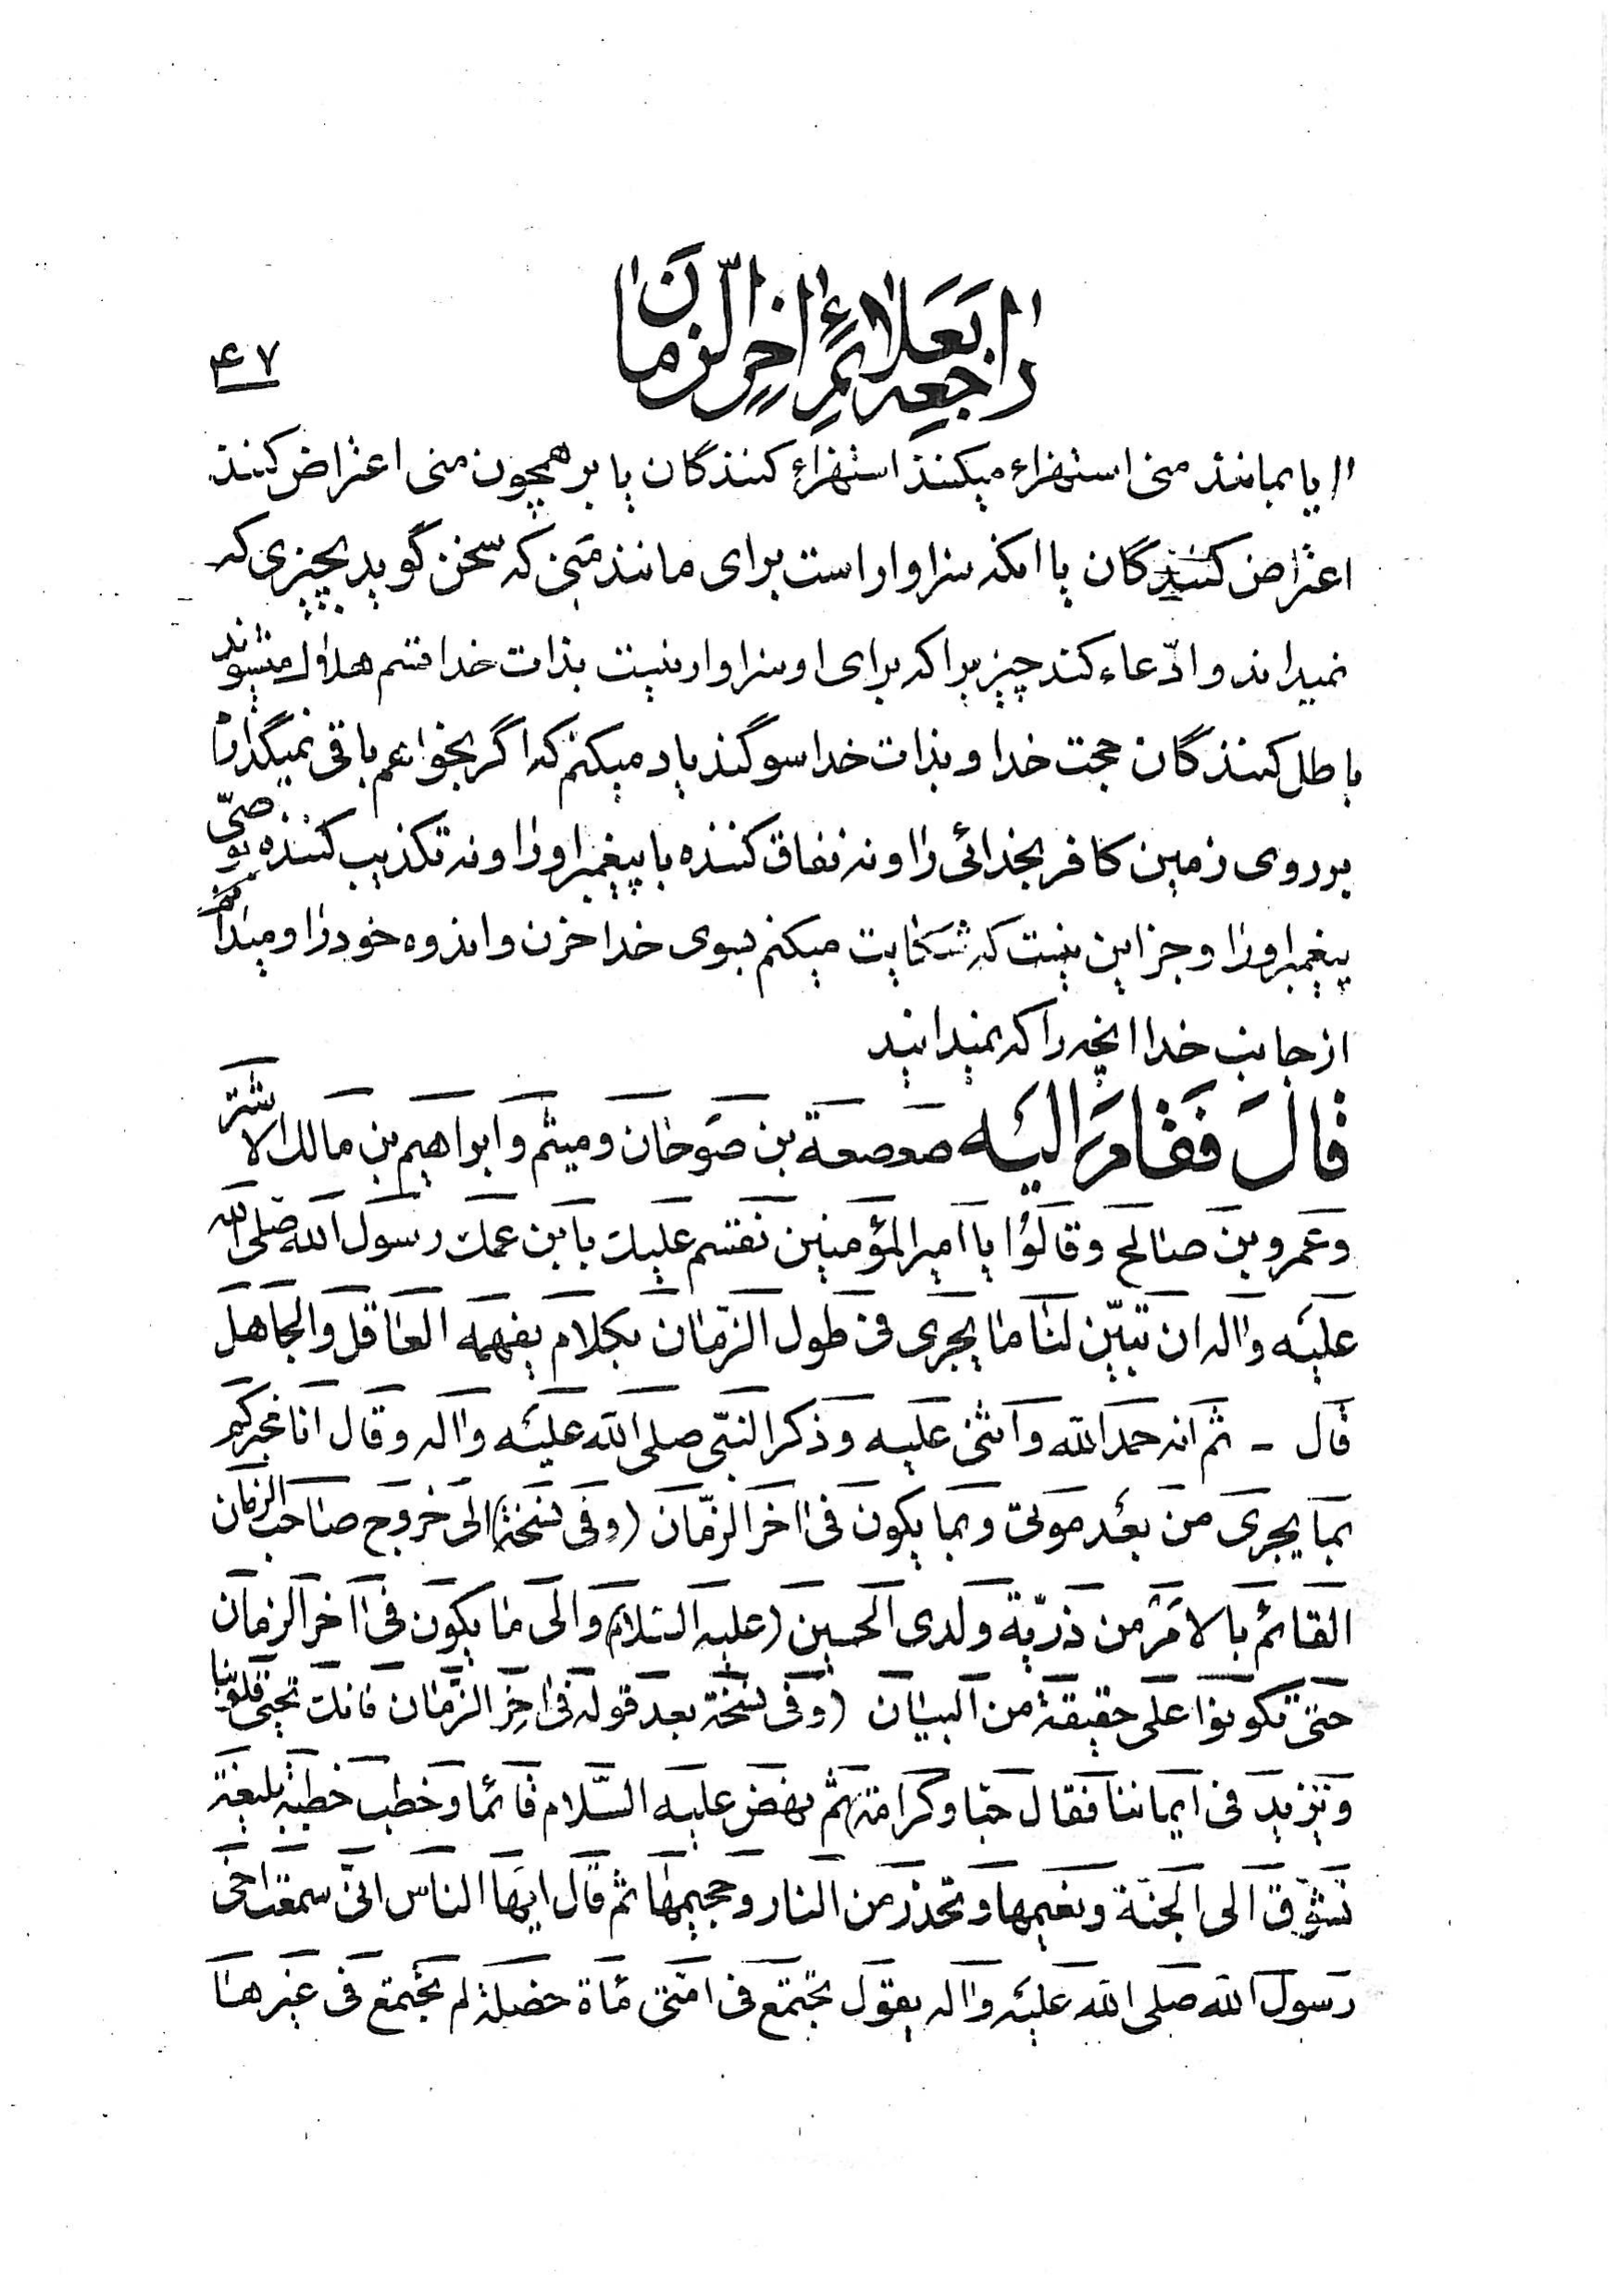 راجعه بعلائم اٰخر الزّمان
۴۷
اٰیا بمانند منی استهزاء میکنند استهزاء کنندگان یا بر همچون منی اعتراض کنند
اعتراض کنندگان یا اینکه سزاوار است برای مانند منی که سخن گوید بچیزی که
نمیداند و ادّعاء کند چیزیرا که برای او سزاوار نیست بذات خدا قسم هلاک میشوند
باطل کنندگان حجت خدا و بذات خدا سوگند یاد میکنم که اگر بخواهم باقی نمیگذارم
بر روی زمین کافر بخدائی را و نه نفاق کننده با پیغمبر او را و نه تکذیب کننده بوصیّ
پیغمبر او را و جز این نیست که شکایت میکنم بسوی خدا حزن و اندوه خود را و میدانم
از جانب خدا انچه را که نمیدانید
قالَ فَقامَ اِلَیْه صعصعة بن صَوحان ومیثم وابراهیم بن مالك الاشتر
وعَمرو بن صالح وقالوُا یا امیر المؤمنین نقسم علیك بابن عمك رسول الله صلی الله
علیْه واٰله ان تبیّن لنا ما یجری فی طول الزمان بکلام یفهمه العاقل والجاهل
قال - ثم انه حمد الله واثنی علیه وذکر النبّی صلی الله علیْه واٰله وقال انا مخبرکم
بما یجری من بعْد موتی وبما یکون فی اٰخر الزّمان (وفی نسخة) الی خروج صاحب الزمان
القائم بالامْر من ذرّیة ولدی الحسین (علیه السّلام) والی ما یکون فی اٰخر الزمان
حتی تکونوا علی حقیقة من البیان (وفی نسخة بعد قوله فی اٰخِر الزّمان فانك تحیی قلوبنا
وتزید فی ایماننا فقال حبّا وکرامة) ثم نهض علیه السّلام قائما وخطب خطبة بلیغة
تشوّق الی الجنّة ونعیمها وتحذر من النار وجحیمها ثم قال ایهَا الناس انی سمعت اخی
رسول الله صلی الله علیْه واٰله یقول تجتمع فی امّتی مأة خصلة لم تجتمع فی غیرها